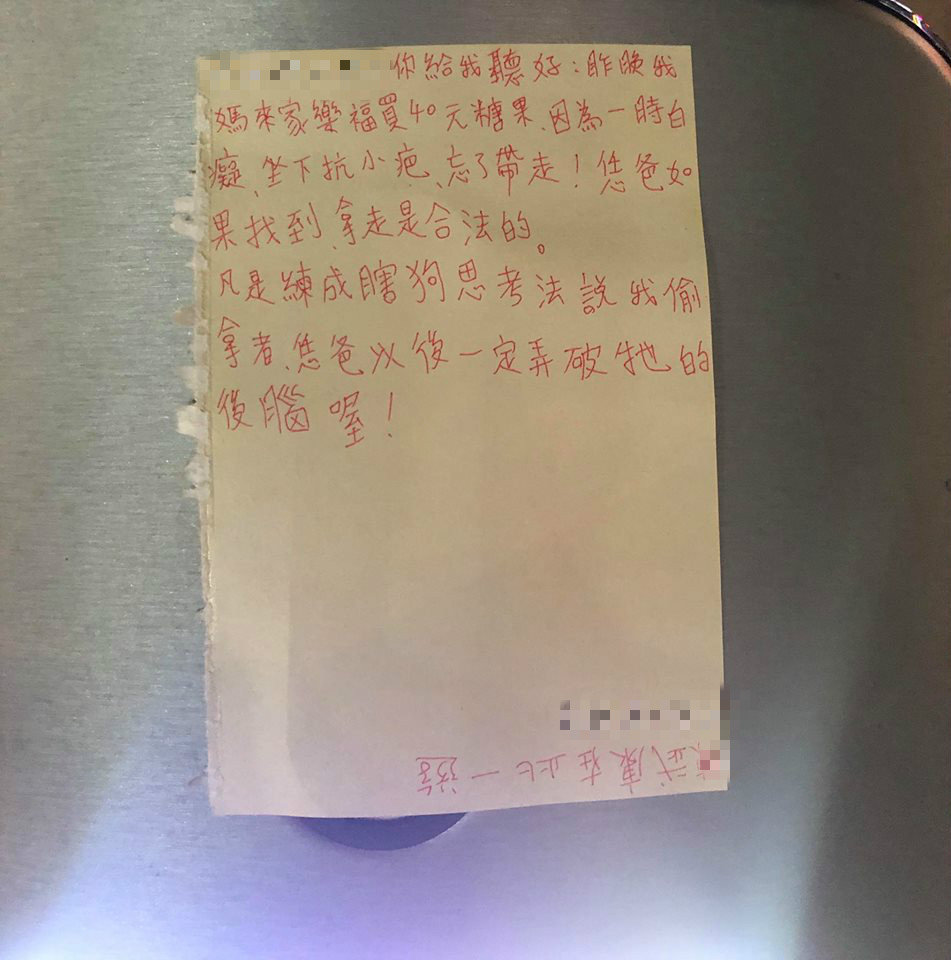 你給我聽好:昨晚我
媽來家樂福買40元糖果、因為一時白
癡、坐下抗小疤、忘了帶走!恁爸如
果找到、拿走是合法的。
凡是練成瞎狗思考法說我偷
拿者、恁爸以後一定弄破牠的
後腦喔!
武康在此一遊